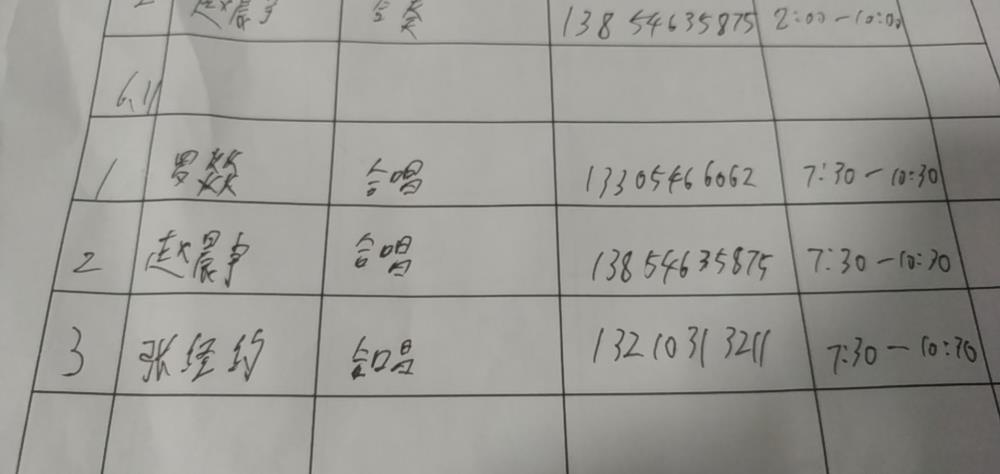 2 赵晨 13854635875 2:00-10:00
6.11
1 罗燚 合唱 13305466062 7:30-10:30
2 赵晨 合唱 13854635875 7:30-10:30
3 张经纬 合唱 13210313211 7:30-10:30